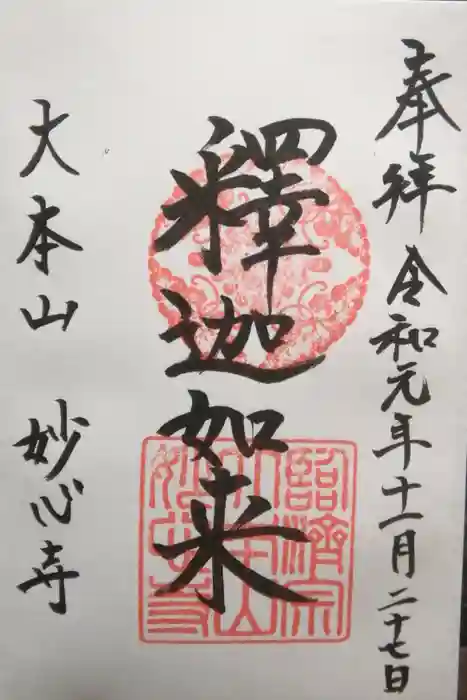 奉拝 令和元年十一月二十七日
釋迦如来
大本山 妙心寺
臨済宗
大本山
妙心寺